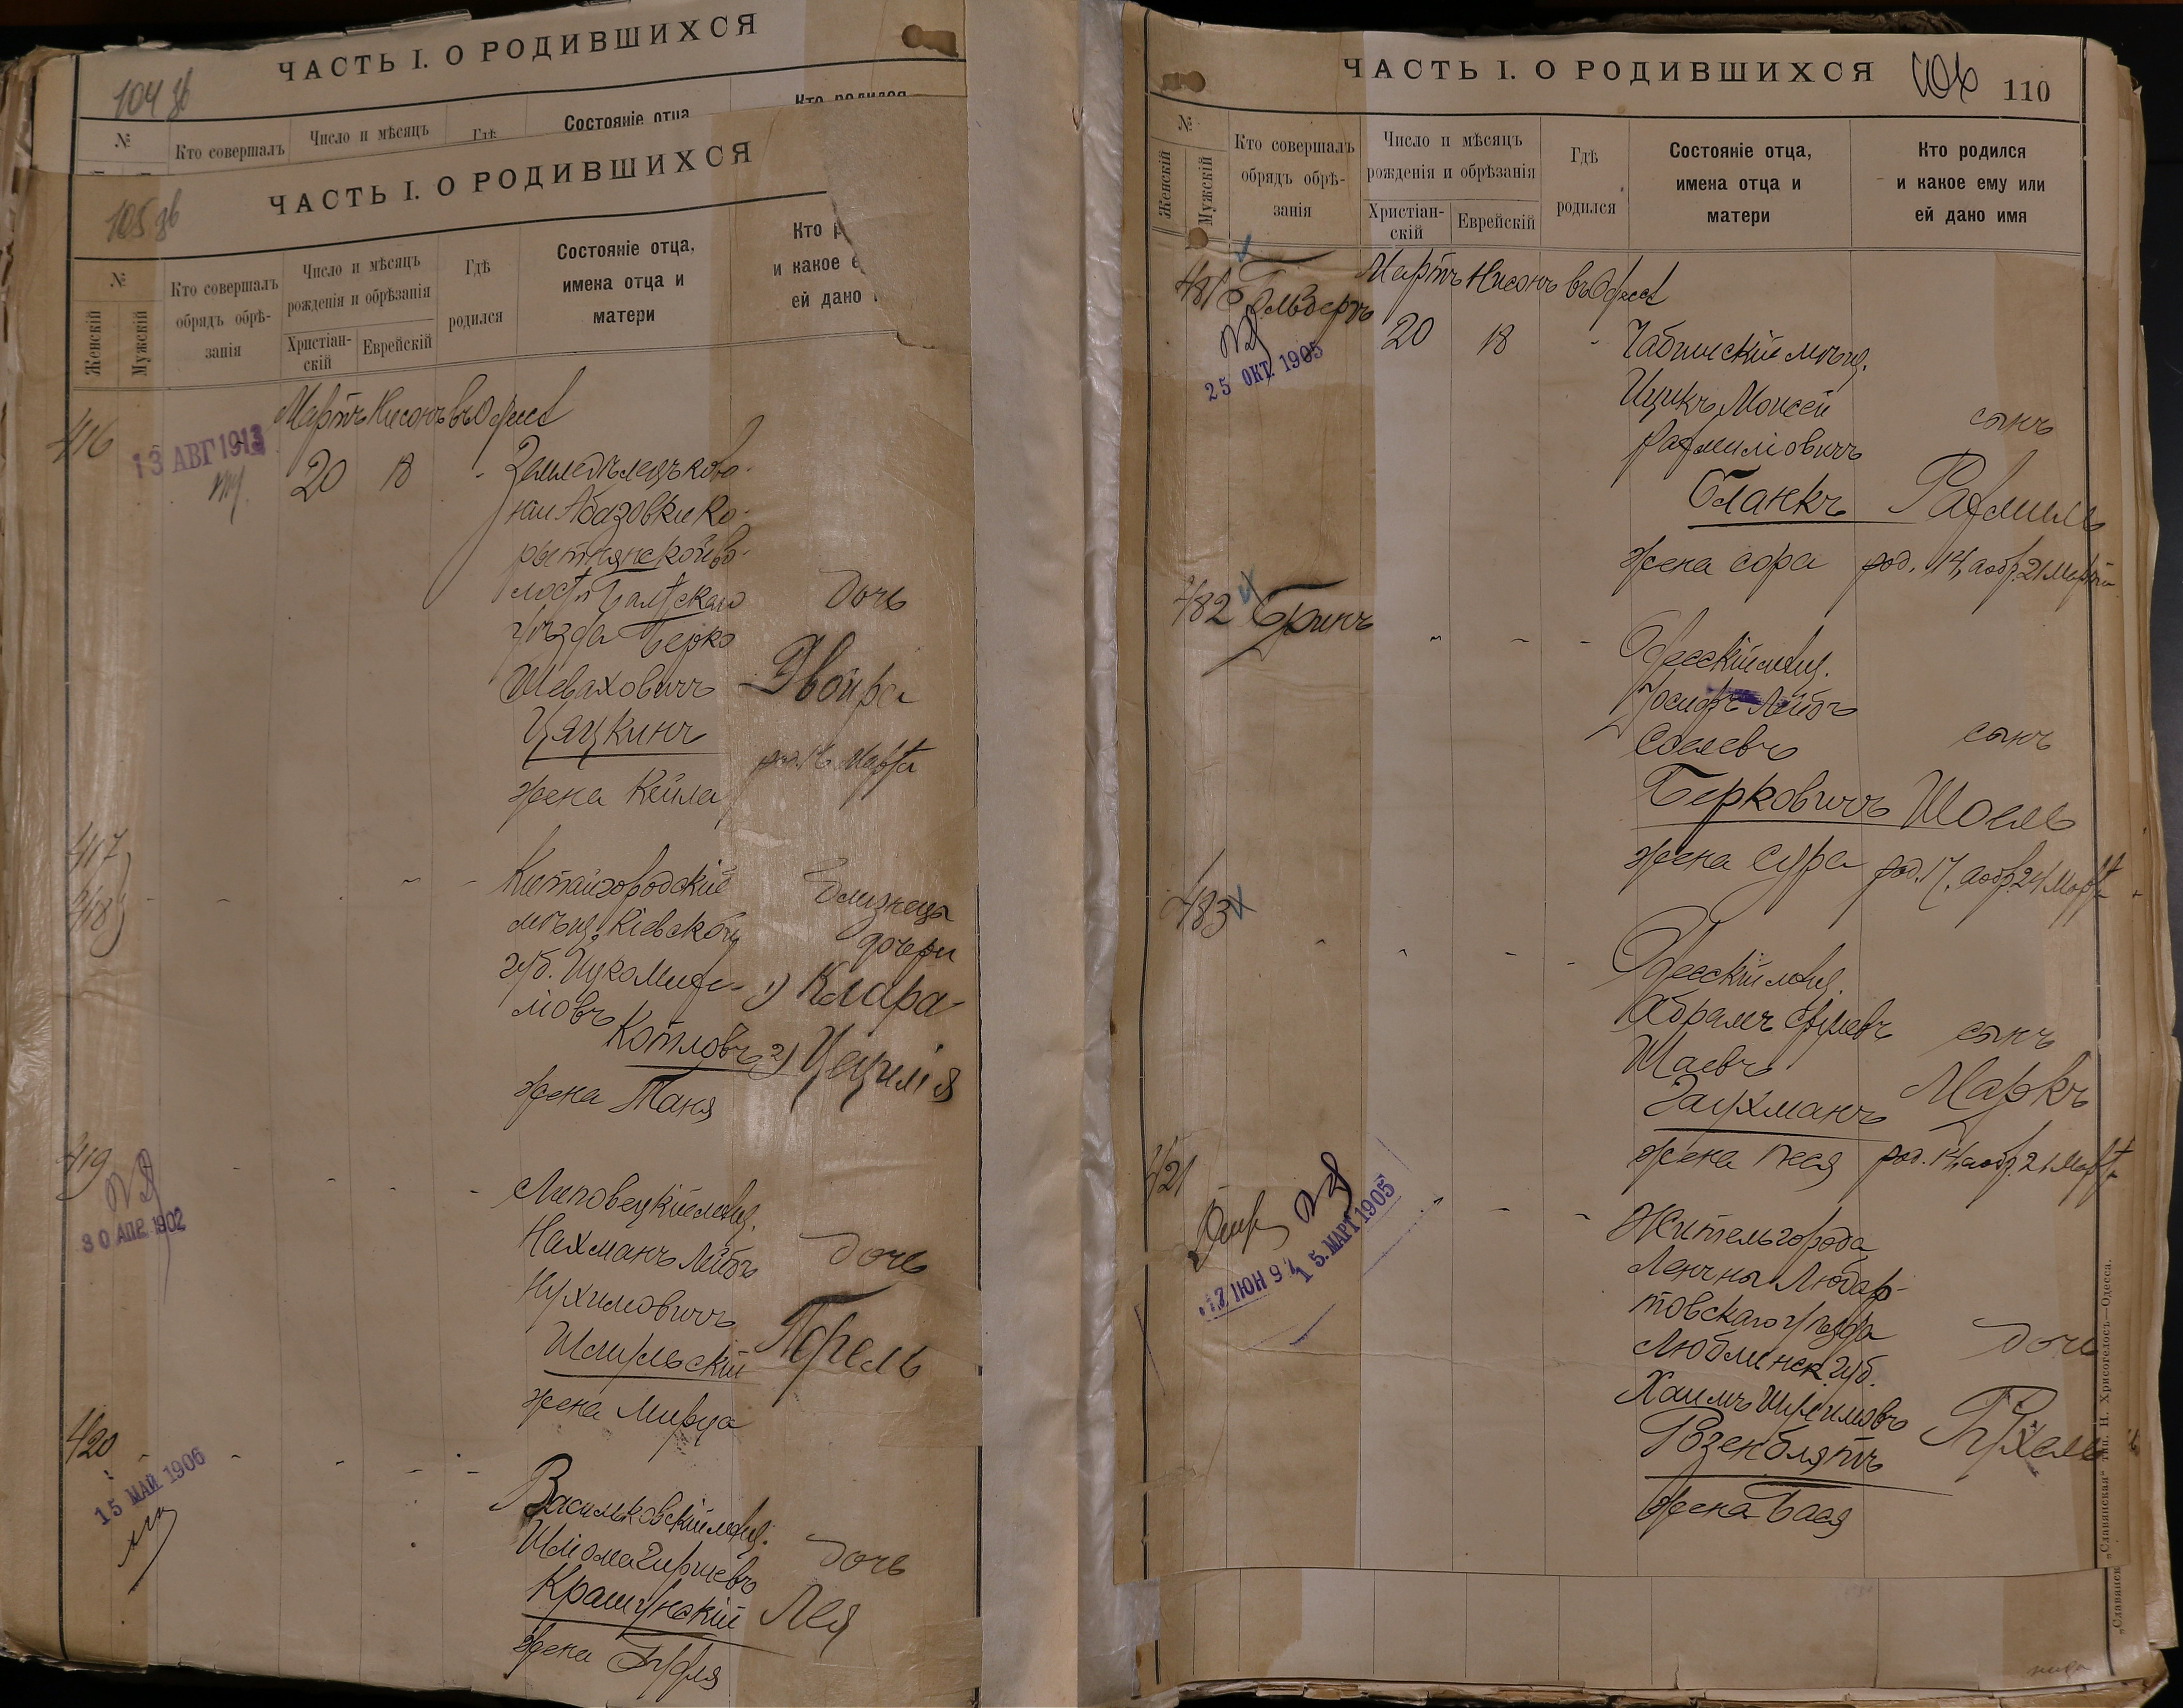 ЧАСТЬ I. О РОДИВШИХСЯ
104
№
Кто совершалъ
Число и мѣсяцъ
Гдѣ
Состояніе отца
Кто родился
ЧАСТЬ I. О РОДИВШИХСЯ
105
№
Женскій
Мужскій
Кто совершалъ
обрядъ обрѣ-
занія
Число и мѣсяцъ
рожденія и обрѣзанія
Христіан-
скій
Еврейскій
Гдѣ
родился
Состояніе отца,
имена отца и
матери
Кто р
и какое е
ей дано
416
13 АВГ 1913
Мартъ Нисонъ въ Одессѣ
20 18
Земледѣлецъ коло-
ніи Абазовки Ко-
рытнянской во-
лости Балтскаго
уѣзда Берко
Шеваховичъ
Цяцкинъ
жена Кейла
дочь
Двойра
род. 16 Марта
417
418
Китайгородскій
мѣщ. Кіевской
губ.
Котловъ
жена Таня
близнецы
дочери
1) Клара
2) Цецилія
419
30 АПР. 1902
Липовецкій мѣщ.
Нахманъ Лейбъ
Нухимовичъ
жена Мирца
дочь
Перель
420
15 МАЙ 1906
Васильковскій мѣщ.
Шлома Гиршевъ
Крашунскій
жена
дочь
Лея
ЧАСТЬ I. О РОДИВШИХСЯ
110
№
Женскій
Мужскій
Кто совершалъ
обрядъ обрѣ-
занія
Число и мѣсяцъ
рожденія и обрѣзанія
Христіан-
скій
Еврейскій
Гдѣ
родился
Состояніе отца,
имена отца и
матери
Кто родился
и какое ему или
ей дано имя
481
Гольберъ
25 ОКТ. 1905
Мартъ Нисонъ въ Одессѣ
20 18
Чабинскій мѣщ.
Ицикъ Моисей
Рафаиловичъ
Бланкъ
жена Сора
сынъ
Рафаиль
род. 14, а обр. 21 Марта
482
Гринъ
Одесскій мѣщ.
Іосифъ Лейбъ
Беркович
жена Сура
сынъ
Шоель
род. 17, а обр. 24 Марта
483
Одесскій мѣщ.
Абрамъ
Шаевъ
Гаухманъ
жена Песя
сынъ
Маркъ
род. 14, а обр. 21 Марта
421
12 ЮН 97
15. МАРТ 1905
Житель города
Ленчны Любар-
товскаго уѣзда
Люблинск. губ.
Хаимъ
Розенблятъ
жена Бася
дочь
Рухель
„Славянская“ Тип. Н. Хрисогелосъ.—Одесса.
„Славянск